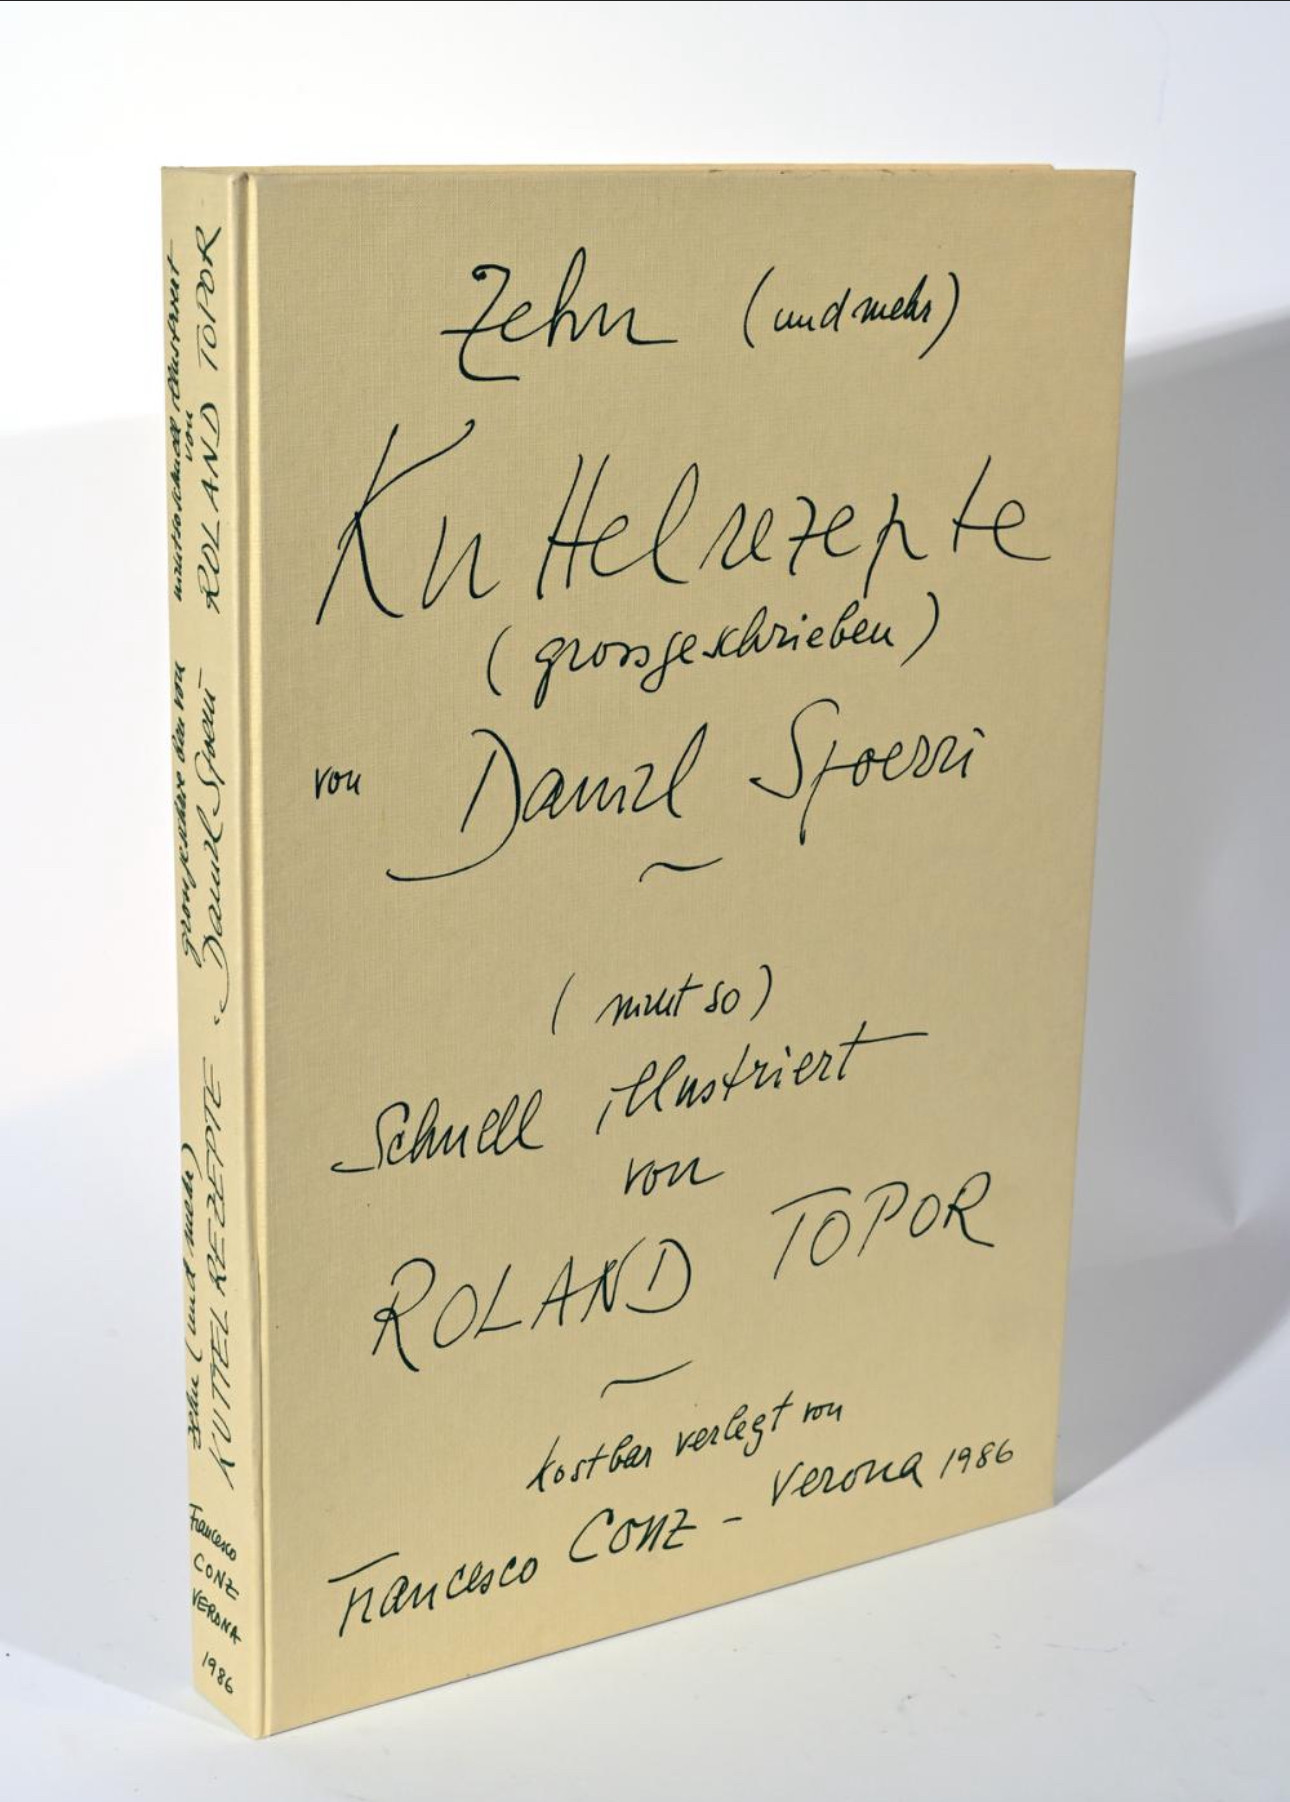 Zehn (und mehr)
Kuttelrezepte
(grossgeschrieben)
von Daniel Spoerri
(nicht so)
Schnell illustriert
von
ROLAND TOPOR
kostbar verlegt von
Francesco Conz - Verona 1986
zehn (und mehr) grossgeschrieben von nicht so schnell illustriert
von
KUTTELREZEPTE Daniel Spoerri ROLAND TOPOR
Francesco
CONZ
VERONA
1986